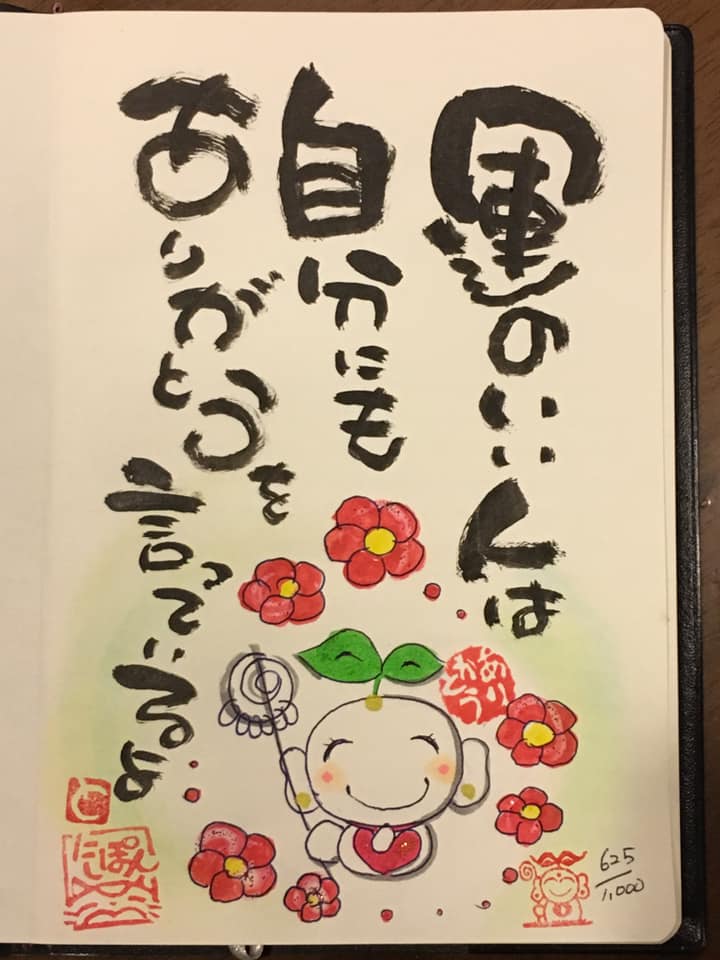 運のいい人は
自分にも
ありがとうを
言っているよ
ありがとう
625/1,000